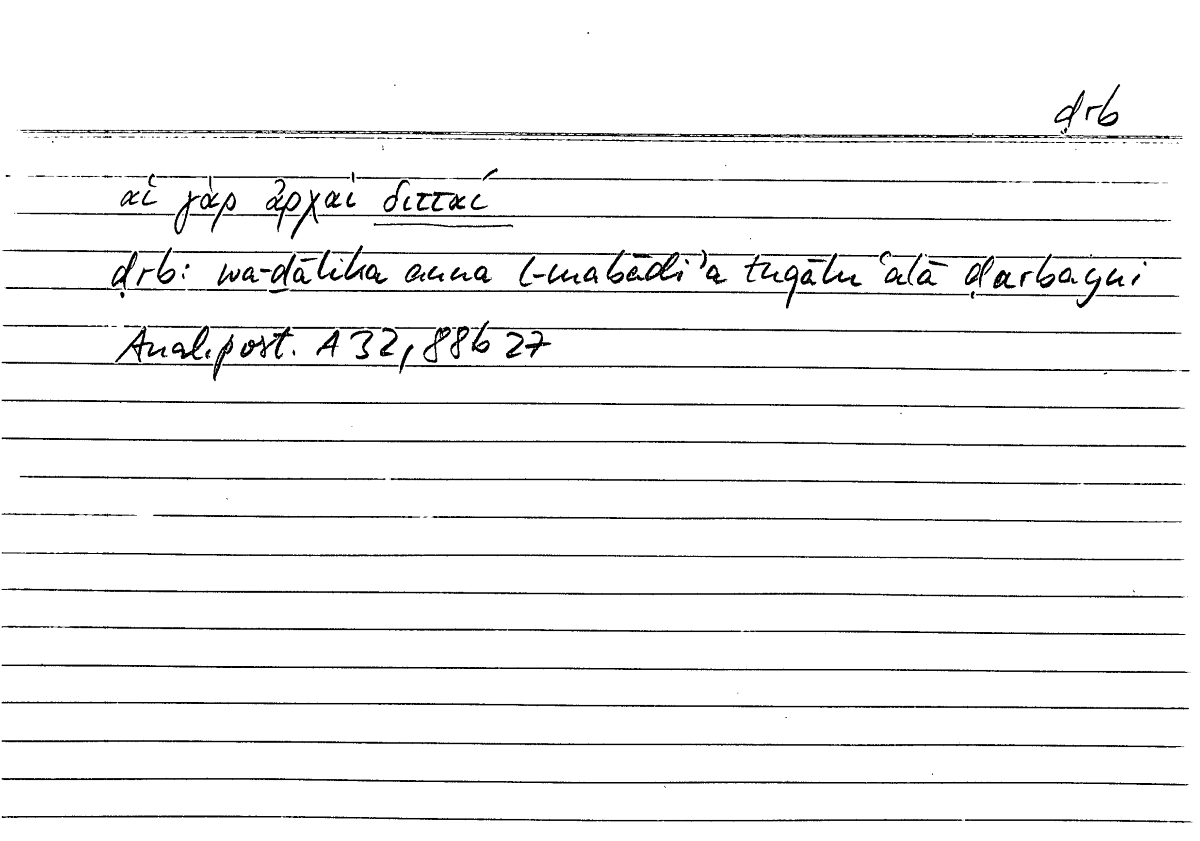 ḍrb
αἱ γὰρ ἀρχαὶ διτταί
ḍrb: wa-ḏālika anna l-mabādiʾa tuqālu ʿalā ḍarbayni
Anal. post. A 32, 88b 27